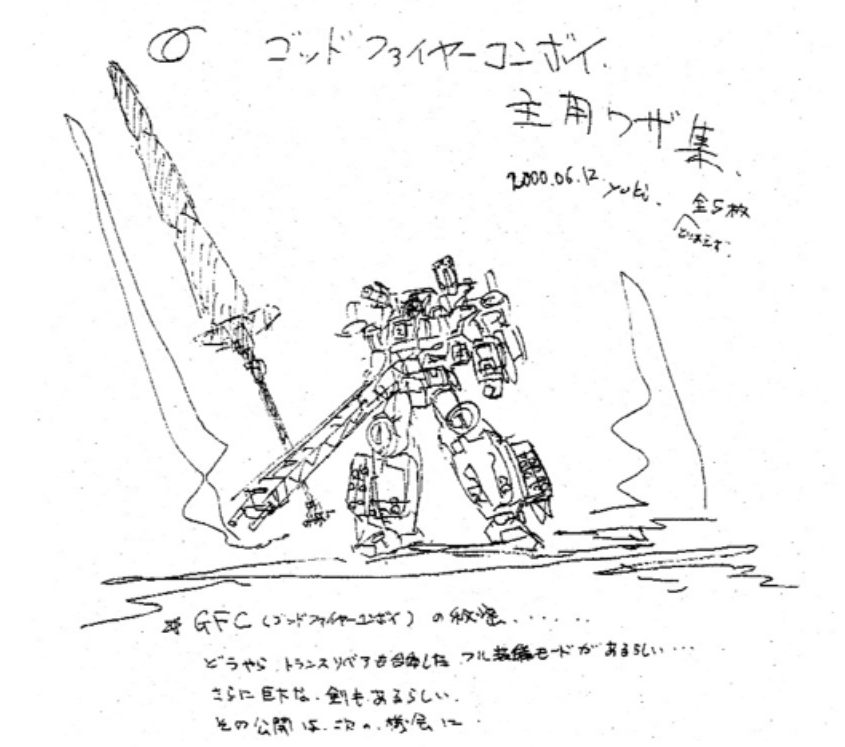 ⑥ ゴッドファイヤーコンボイ.
主用ワザ集、
2000.06.12 yuki. 全5枚
とりあえず.
※ GFC (ゴッドファイヤーコンボイ) の秘密......
どうやら、トランスリペアも合体した フル装備モードがあるらしい…
さらに巨大な、剣もあるらしい.
その公開は、次の、機会に